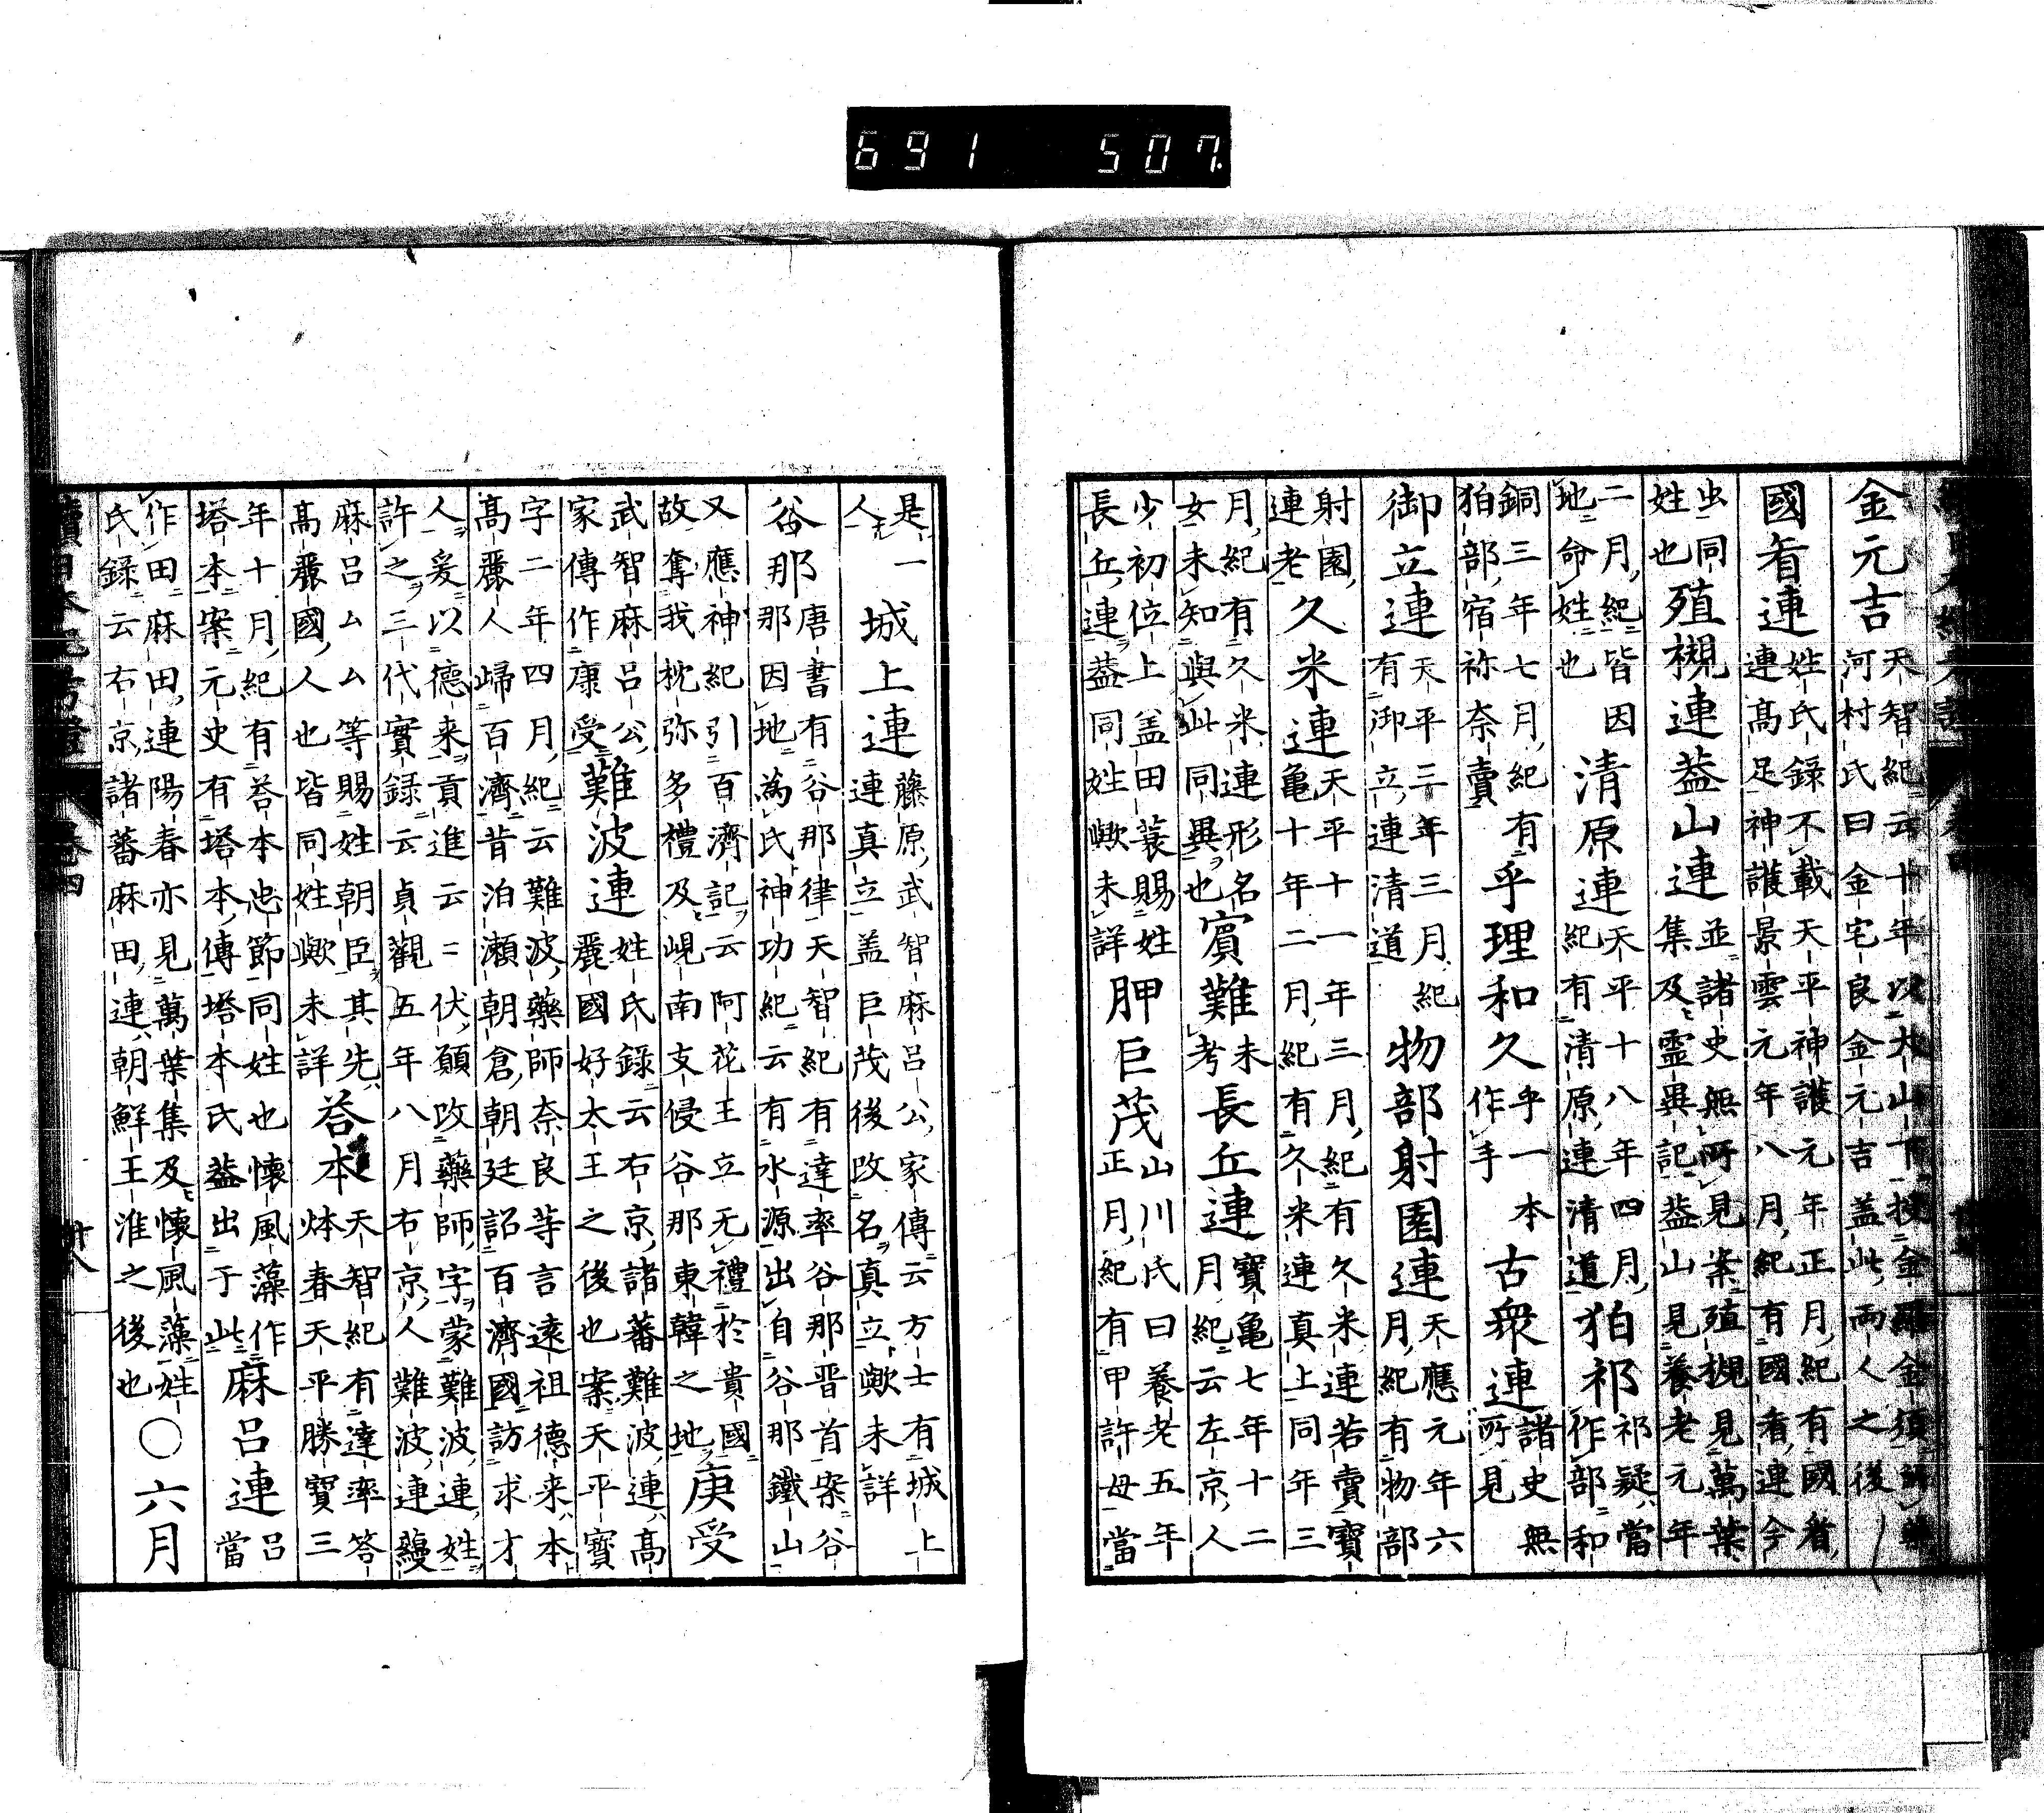 691 507
金元吉
天智紀云十年以大山下授金
河村氏曰金宅良金元吉盖此兩人之後
國看連
姓氏録不載天平神護元年正月紀有國看
連髙足神護景雲元年八月紀有國看連今
虫同
姓也
殖槻連益山連
並諸史無所見案殖槻見萬葉
集及靈異記益山見養老元年
二月紀皆因
地命姓也
清原連
天平十八年四月
紀有清原連清道
狛祁
祁疑當
作部和
銅三年七月紀有
狛部宿祢奈賣
乎理和久
乎一本
作手
古衆連
諸史無
所見
御立連
天平三年三月紀
有御立連清道
物部射園連
天應元年六
月紀有物部
射園
連老
久米連
天平十一年三月紀有久米連若賣寶
亀十年二月紀有久米連真上同年三
月紀有久米連形名
女未知與此同異也
賓難
未
考
長丘連
寶亀七年十二
月紀云左京人
少初位上盖田蓑賜姓
長丘連葢同姓歟未詳
胛巨茂
山川氏曰養老五年
正月紀有甲許母當
是一
人
城上連
藤原武智麻呂公家傳云方士有城上
連真立盖巨茂後改名真立歟未詳
谷那
唐書有谷那律天智紀有達率谷那晋首案谷
那因地為氏神功紀云有水源出自谷那鐵山
又應神紀引百濟記云阿花王立无禮於貴國
故奪我枕弥多禮及峴南支侵谷那東韓之地
庚受
武智麻呂公
家傳作康受
難波連
姓氏録云右京諸蕃難波連髙
麗國好太王之後也案天平寳
字二年四月紀云難波藥師奈良等言遠祖德来本
髙麗人歸百濟昔泊瀬朝倉朝廷詔百濟國訪求才
人爰以德来貢進云云伏願改藥師字蒙難波連姓
許之三代實録云貞觀五年八月右京人難波連蘰
麻呂ムム等賜姓朝臣其先
髙麗國人也皆同姓歟未詳
荅本
天智紀有達率答
㶱春天平勝寳三
年十月紀有荅本忠節同姓也懷風藻作
塔本案元史有塔本傳塔本氏葢出于此
麻呂連
呂
當
作田麻田連陽春亦見萬葉集及懷風藻姓
氏録云右京諸蕃麻田連朝鮮王淮之後也
○六月